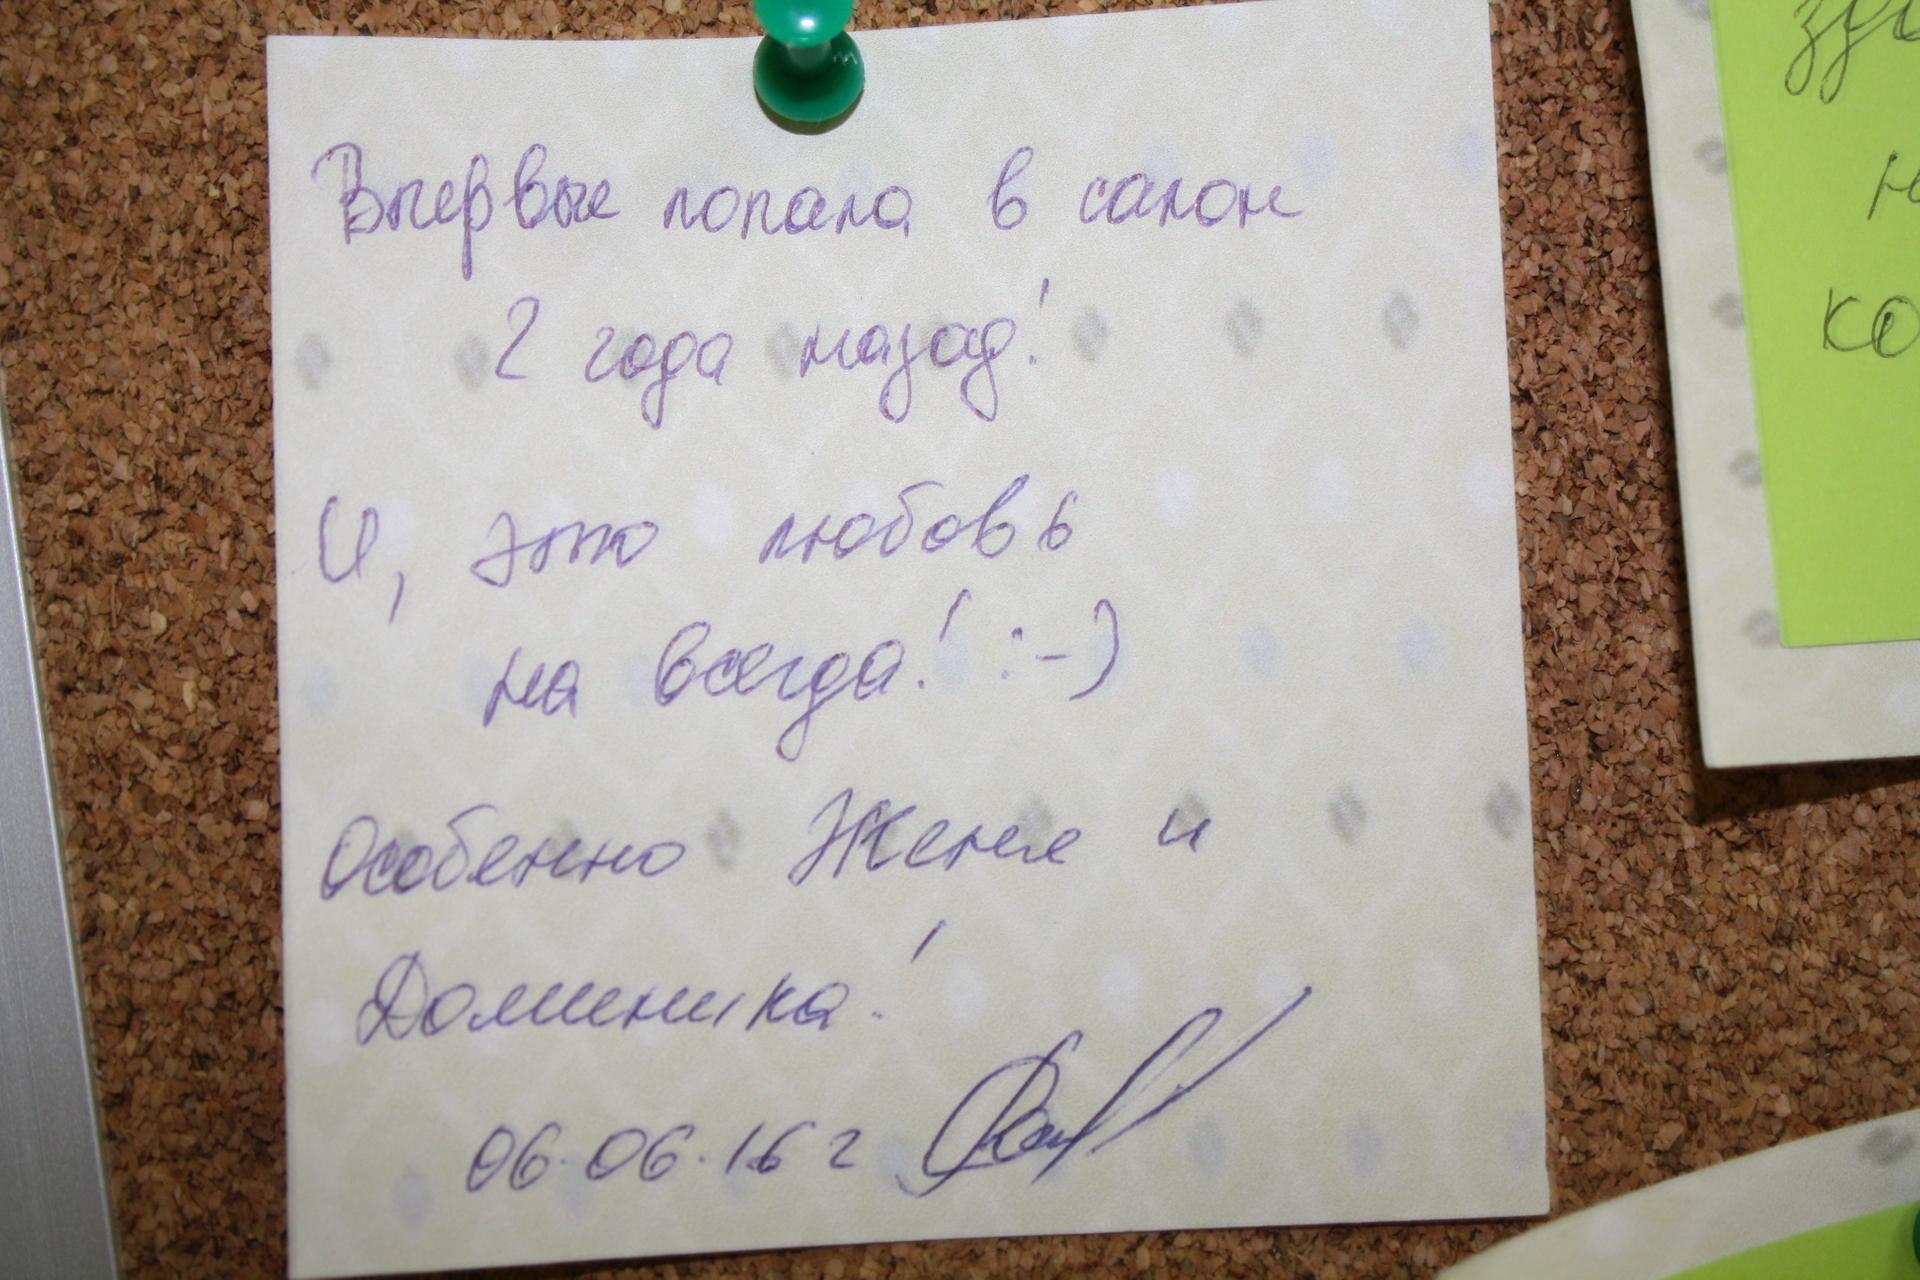 Впервые попала в салон
2 года назад!
И, это любовь
на всегда! :-)
Особенно Женя и
Доминика!
06.06.16 г
ко